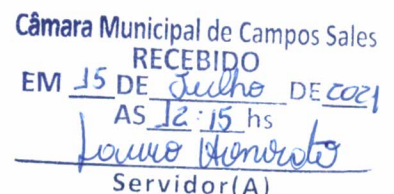 Câmara Municipal de Campos Sales
RECEBIDO
EM 15 DE Julho DE 2021
AS 12:15 hs
Lauro Honorato
Servidor(A)